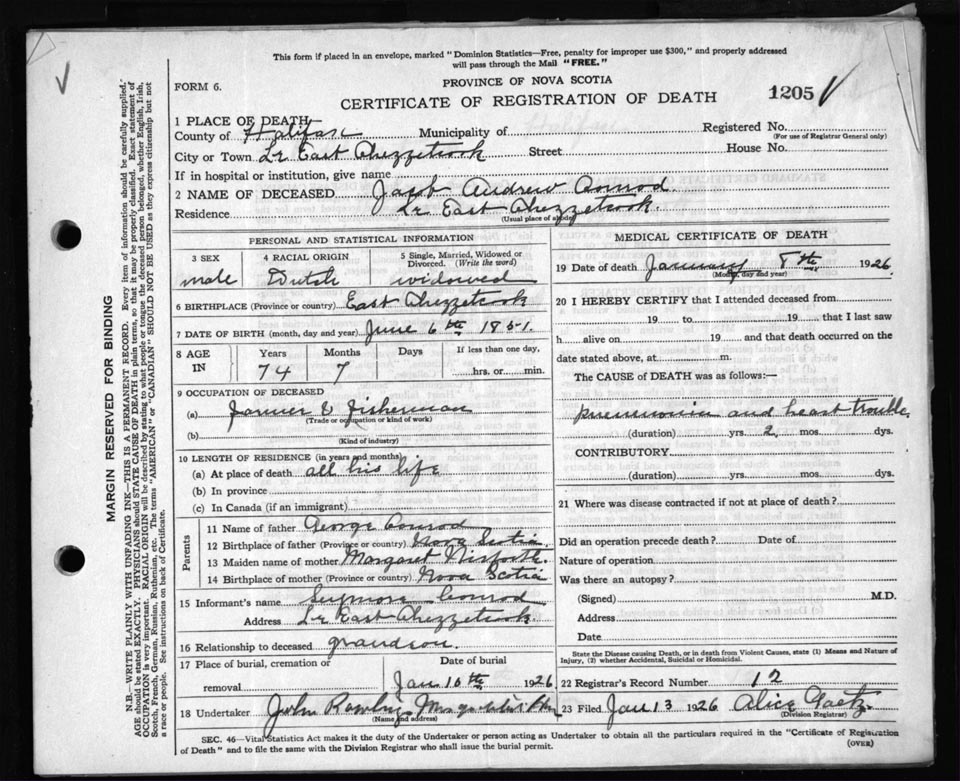 This form if placed in an envelope, marked "Dominion Statistics—Free, penalty for improper use $300," and properly addressed
will pass through the Mail "FREE."
FORM 6.
PROVINCE OF NOVA SCOTIA
CERTIFICATE OF REGISTRATION OF DEATH
1205
1 PLACE OF DEATH
County of Halifax Municipality of Registered No.
(For use of Registrar General only)
City or Town Lr East Chezzetcook Street House No.
If in hospital or institution, give name
2 NAME OF DECEASED Jacob Andrew Conrod.
Residence Lr East Chezzetcook.
(Usual place of abode)
PERSONAL AND STATISTICAL INFORMATION
3 SEX 4 RACIAL ORIGIN 5 Single, Married, Widowed or
Divorced. (Write the word)
male Dutch widowed
6 BIRTHPLACE (Province or country) East Chezzetcook
7 DATE OF BIRTH (month, day and year) June 6th 1851.
8 AGE
IN
Years Months Days If less than one day,
74 7 hrs. or min.
9 OCCUPATION OF DECEASED
(a) Farmer & Fisherman
(Trade or occupation or kind of work)
(b)
(Kind of industry)
10 LENGTH OF RESIDENCE (in years and months)
(a) At place of death all his life
(b) In province
(c) In Canada (if an immigrant)
Parents
11 Name of father George Conrod
12 Birthplace of father (Province or country) Nova Scotia
13 Maiden name of mother Margaret
14 Birthplace of mother (Province or country) Nova Scotia
15 Informant's name Seymore Conrod
Address Lr East Chezzetcook.
16 Relationship to deceased grandson.
17 Place of burial, cremation or Date of burial
removal Jan 10th 1926
18 Undertaker John
(Name and address)
MEDICAL CERTIFICATE OF DEATH
19 Date of death January 8th 1926
(Month, day and year)
20 I HEREBY CERTIFY that I attended deceased from
19 to 19 that I last saw
h alive on 19 and that death occurred on the
date stated above, at m.
The CAUSE of DEATH was as follows:—
pneumonia and heart trouble.
(duration) yrs. 2 mos. dys.
CONTRIBUTORY
(duration) yrs. mos. dys.
21 Where was disease contracted if not at place of death?
Did an operation precede death? Date of
Nature of operation
Was there an autopsy?
(Signed) M.D.
Address
Date
State the Disease causing Death, or in death from Violent Causes, state (1) Means and Nature of
Injury, (2) whether Accidental, Suicidal or Homicidal.
22 Registrar's Record Number 12
23 Filed Jan 13 1926 Alice Gaetz
(Division Registrar)
SEC. 46—Vital Statistics Act makes it the duty of the Undertaker or person acting as Undertaker to obtain all the particulars required in the "Certificate of Registration
of Death" and to file the same with the Division Registrar who shall issue the burial permit.
(OVER)
MARGIN RESERVED FOR BINDING
N.B.—WRITE PLAINLY WITH UNFADING INK—THIS IS A PERMANENT RECORD. Every item of information should be carefully supplied.
AGE should be stated EXACTLY. PHYSICIANS should STATE CAUSE OF DEATH in plain terms, so that it may be properly classified. Exact statement of
OCCUPATION is very important. RACIAL ORIGIN will be described by stating to what people or tongue the deceased person belonged, whether English, Irish,
Scotch, French, German, Russian, Ruthenian, etc. The terms "AMERICAN" or "CANADIAN" SHOULD NOT BE USED as they express citizenship but not
a race or people. See instructions on back of Certificate.